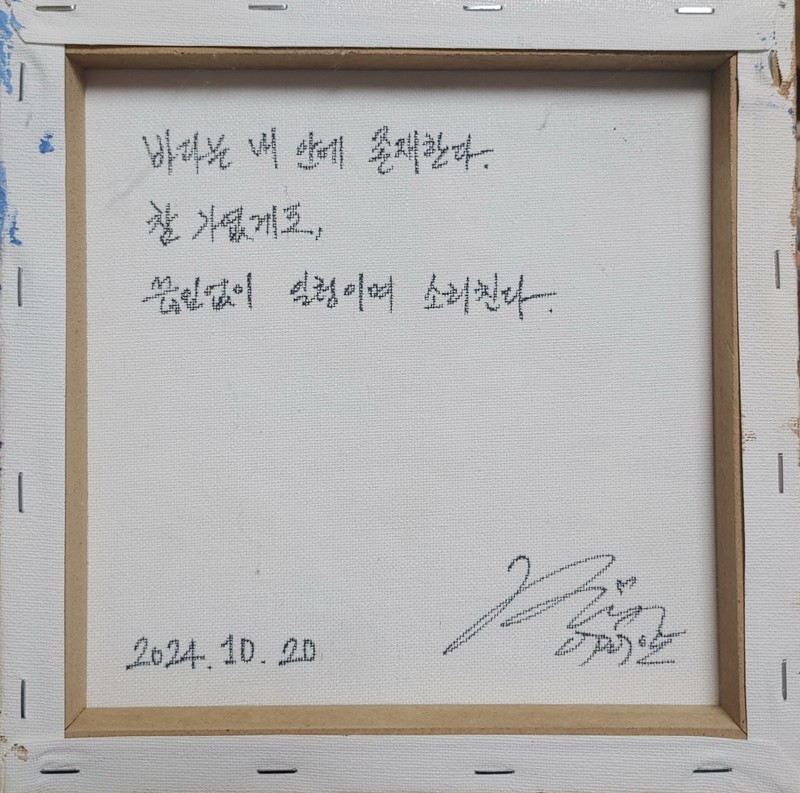 바다는 내 안에 존재한다.
참 가엾게도,
끊임없이 일렁이며 소리친다.
2024.10.20